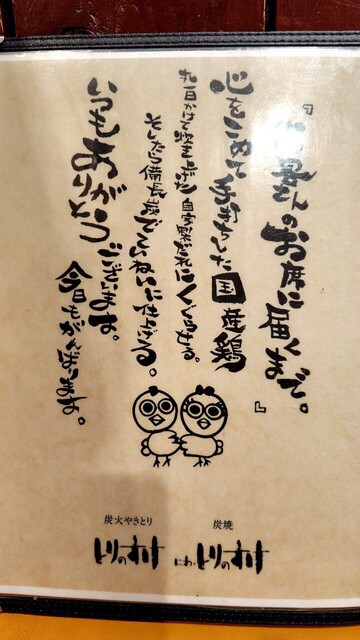 『お客さんのお席に届くまで。』
心をこめて手打ちした国産鶏
丸一日かけて炊き上げた自家製だれにくぐらせる。
そしたら備長炭でていねいに仕上げる。
いつもありがとうございます。
今日もがんばります。
炭焼
にわ・とりのすけ
炭火やきとり
とりのすけ